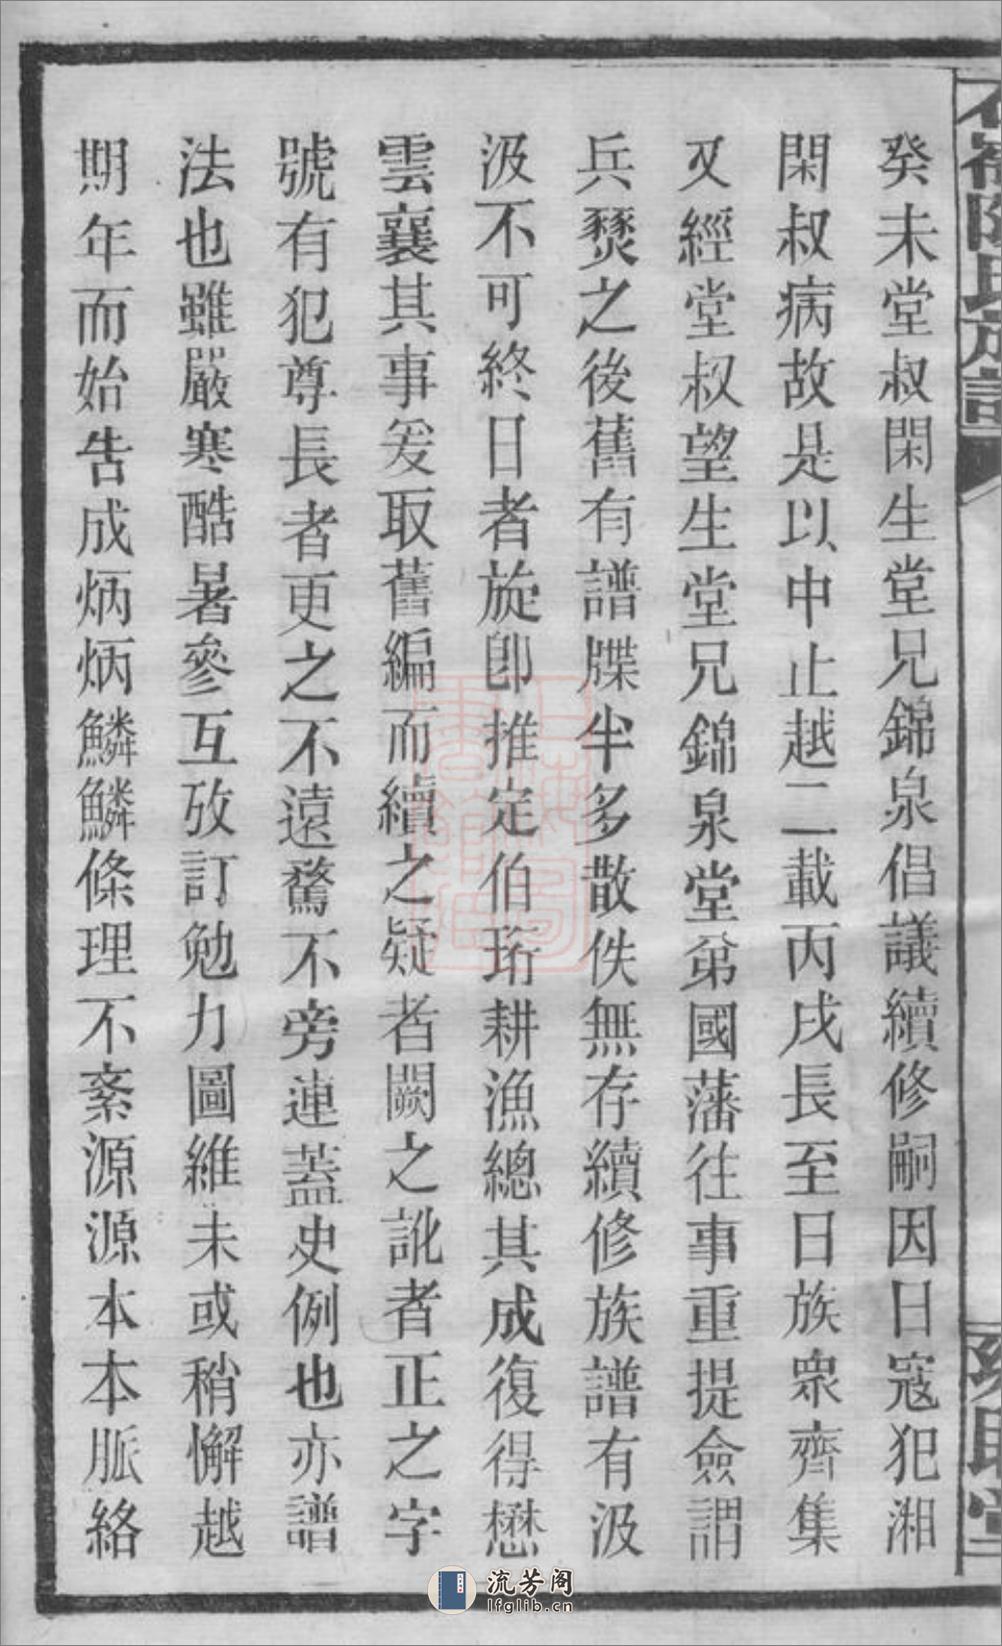 癸未堂叔閑生堂兄錦泉倡議續修嗣因日寇犯湘
閑叔病故是以中止越二載丙戌長至日族眾齊集
又經堂叔望生堂兄錦泉堂弟國藩往事重提僉謂
兵燹之後舊有譜牒半多散佚無存續修族譜有汲
汲不可終日者旋卽推定伯珩耕漁總其成復得懋
雲襄其事爰取舊編而續之疑者闕之訛者正之字
號有犯尊長者更之不遠騖不旁連蓋史例也亦譜
法也雖嚴寒酷暑參互攷訂勉力圖維未或稍懈越
期年而始告成炳炳鱗鱗條理不紊源源本本脈絡
流芳阁
lfglib.cn